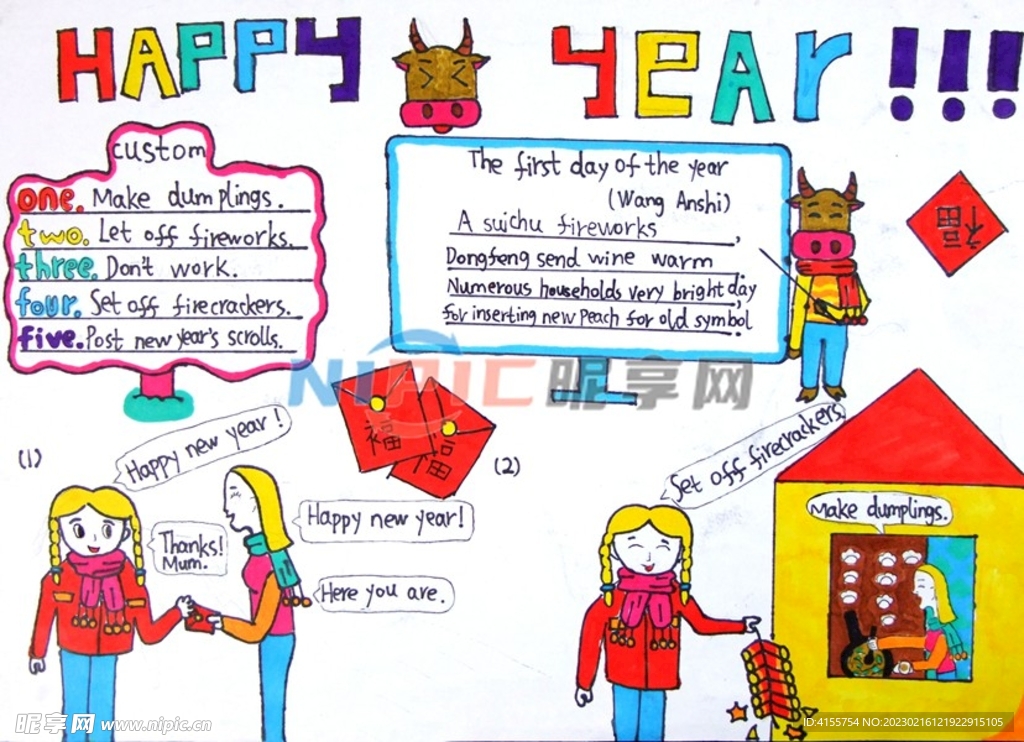 HAPPY YEAR!!!
custom
one. Make dumplings.
two. Let off fireworks.
three. Don't work.
four. Set off firecrackers.
five. Post new year's scrolls.
The first day of the year
(Wang Anshi)
A suichu fireworks,
Dongfeng send wine warm
Numerous households very bright day;
for inserting new Peach for old symbol.
福
NiPIC 昵享网
福
福
(1)
Happy new year!
Thanks!
Mum.
Happy new year!
Here you are.
(2)
Set off firecrackers.
Make dumplings.
昵享网 www.nipic.cn
ID:4155754 NO:20230216121922915105